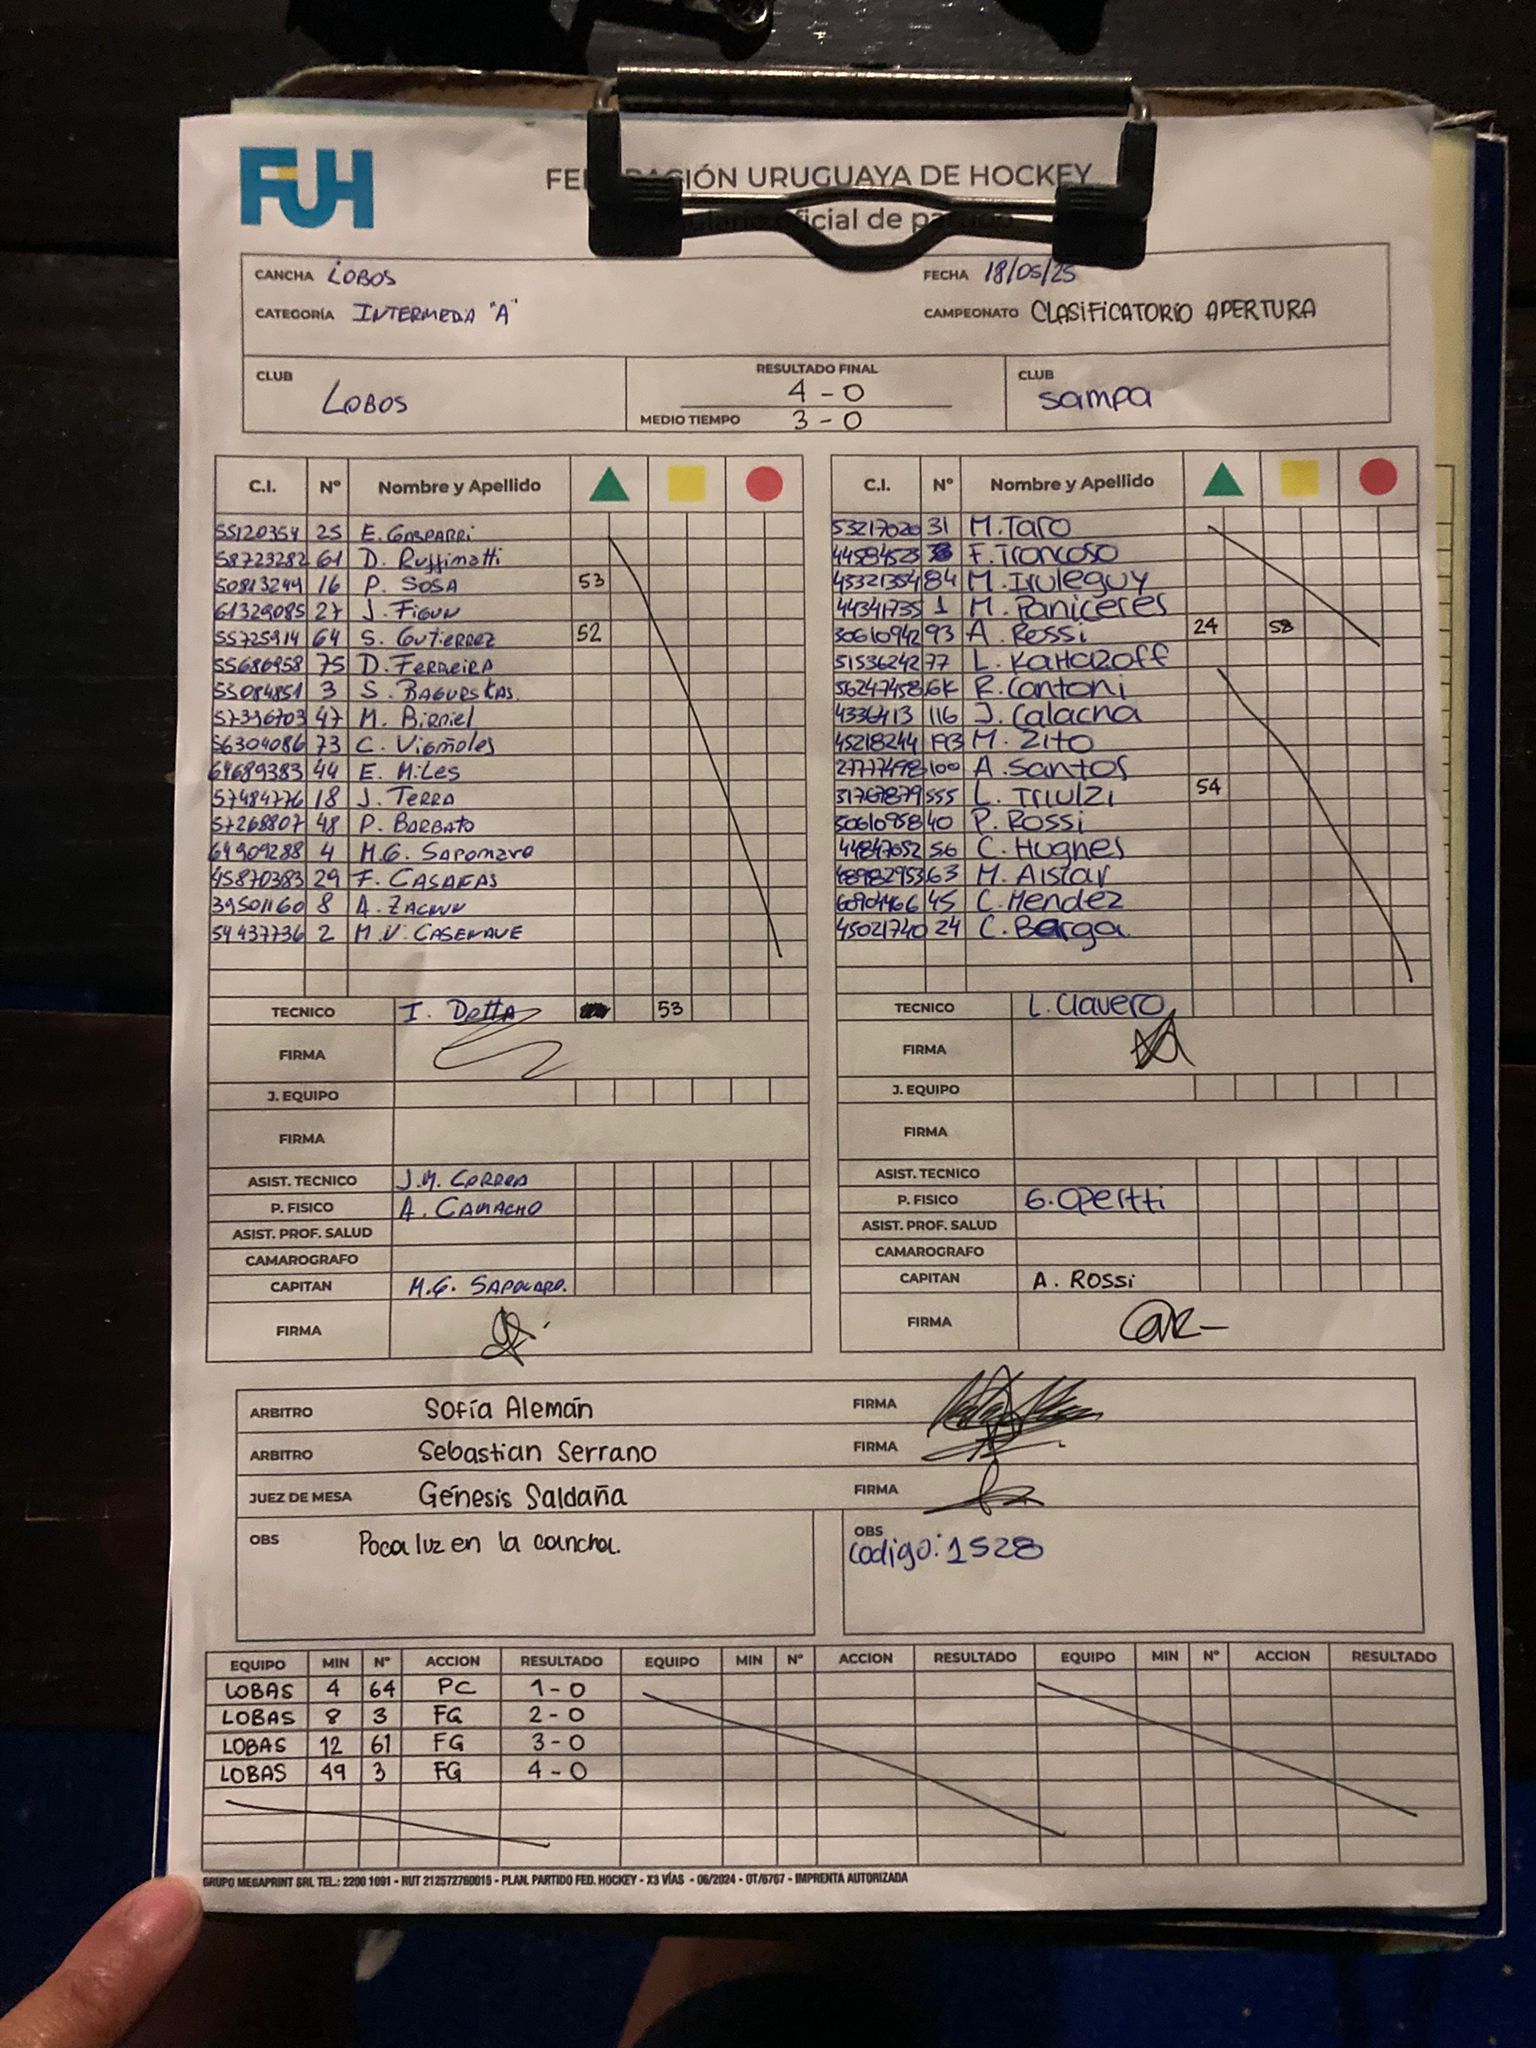 FUH
FEDERACIÓN URUGUAYA DE HOCKEY
oficial de partido
CANCHA LOBOS FECHA 18/05/25
CATEGORÍA INTERMEDA "A" CAMPEONATO CLASIFICATORIO APERTURA
CLUB LOBOS RESULTADO FINAL 4 - 0 CLUB sampa
MEDIO TIEMPO 3 - 0
C.I. Nº Nombre y Apellido
55120354 25 E. GASPARRi
58723282 61 D. Ruffinatti
50813244 16 P. SOSA 53
61329085 27 J. FIGUN
55725914 64 S. GUTIERREZ 52
55686958 75 D. FERREIRA
55084851 3 S. BAGURSKAS.
57396703 47 M. Birriel
56304086 73 C. Vignoles
64689383 44 E. MiLES
57484776 18 J. TERRA
57268807 48 P. BARBATO
64909288 4 M.G.
45870383 29 F. CASAÑAS
39501160 8 A.
54437736 2 M.V. CASENAVE
TECNICO I. Detta 53
FIRMA
J. EQUIPO
FIRMA
ASIST. TECNICO J.M. CORREA
P. FISICO A. CAMACHO
ASIST. PROF. SALUD
CAMAROGRAFO
CAPITAN M.G.
FIRMA
C.I. Nº Nombre y Apellido
53217020 31 M. Taro
44584523 F. Troncoso
45321354 84 M. Iruleguy
44341735 1 M. Paniceres
30610942 93 A. Rossi 24 58
51536242 77 L. Kahazoff
56247458 6K R. Cantoni
4336413 116 J. Calacha
45218244 193 M. Zito
27777498 100 A. Santos
31767879 555 L. Triulzi 54
30610958 40 P. Rossi
44847052 56 C. Hughes
48982953 63 M. Aislar
60904466 45 C. Mendez
45021740 24 C. Barga
TECNICO L. Clavero
FIRMA
J. EQUIPO
FIRMA
ASIST. TECNICO
P. FISICO G. Opertti
ASIST. PROF. SALUD
CAMAROGRAFO
CAPITAN A. ROSSi
FIRMA
ARBITRO Sofía Alemán FIRMA
ARBITRO Sebastian Serrano FIRMA
JUEZ DE MESA Génesis Saldaña FIRMA
OBS Poca luz en la cancha.
OBS codigo: 1528
EQUIPO MIN Nº ACCION RESULTADO EQUIPO MIN Nº ACCION RESULTADO EQUIPO MIN Nº ACCION RESULTADO
LOBAS 4 64 PC 1 - 0
LOBAS 8 3 FG 2 - 0
LOBAS 12 61 FG 3 - 0
LOBAS 49 3 FG 4 - 0
GRUPO MEGAPRINT SRL TEL.: 2200 1091 - RUT 212572760015 - PLAN. PARTIDO FED. HOCKEY - X3 VÍAS - 06/2024 - OT/6767 - IMPRENTA AUTORIZADA